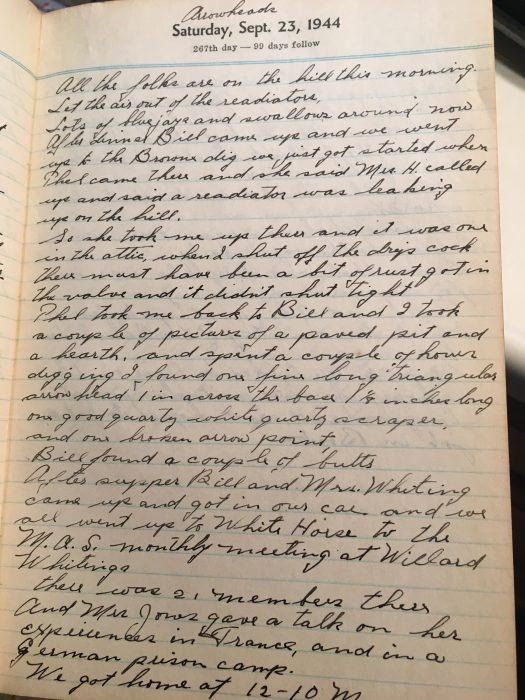 Arrowheads
Saturday, Sept. 23, 1944
267th day — 99 days follow
All the folks are on the hill this morning.
Let the air out of the readiators,
Lots of bluejays and swallows around now
After dinner Bill came up and we went
up to the Browne dig we just got started when
Phel came there and she said Mrs H. called
up and said a readiator was leaking
up on the hill.
So she took me up there and it was one
in the attic, when I shut off the drip cock
there must have been a bit of rust got in
the valve and it didn't shut tight
Phel took me back to Bill and I took
a couple of pictures of a paved pit and
a hearth, and spent a couple of hours
digging I found one fine long triangular
arrowhead 1 in across the base inches long
one good quartz white quartz scraper,
and one broken arrow point
Bill found a couple of butts
After supper Bill and Mrs. Whiting
came up and got in our car and we
all went up to White Horse to the
M.A.S. monthly meeting at Willard
Whitings
there was 21 members there
And Mrs gave a talk on her
experiences in France, and in a
German prison camp.
We got home at 12-10 M